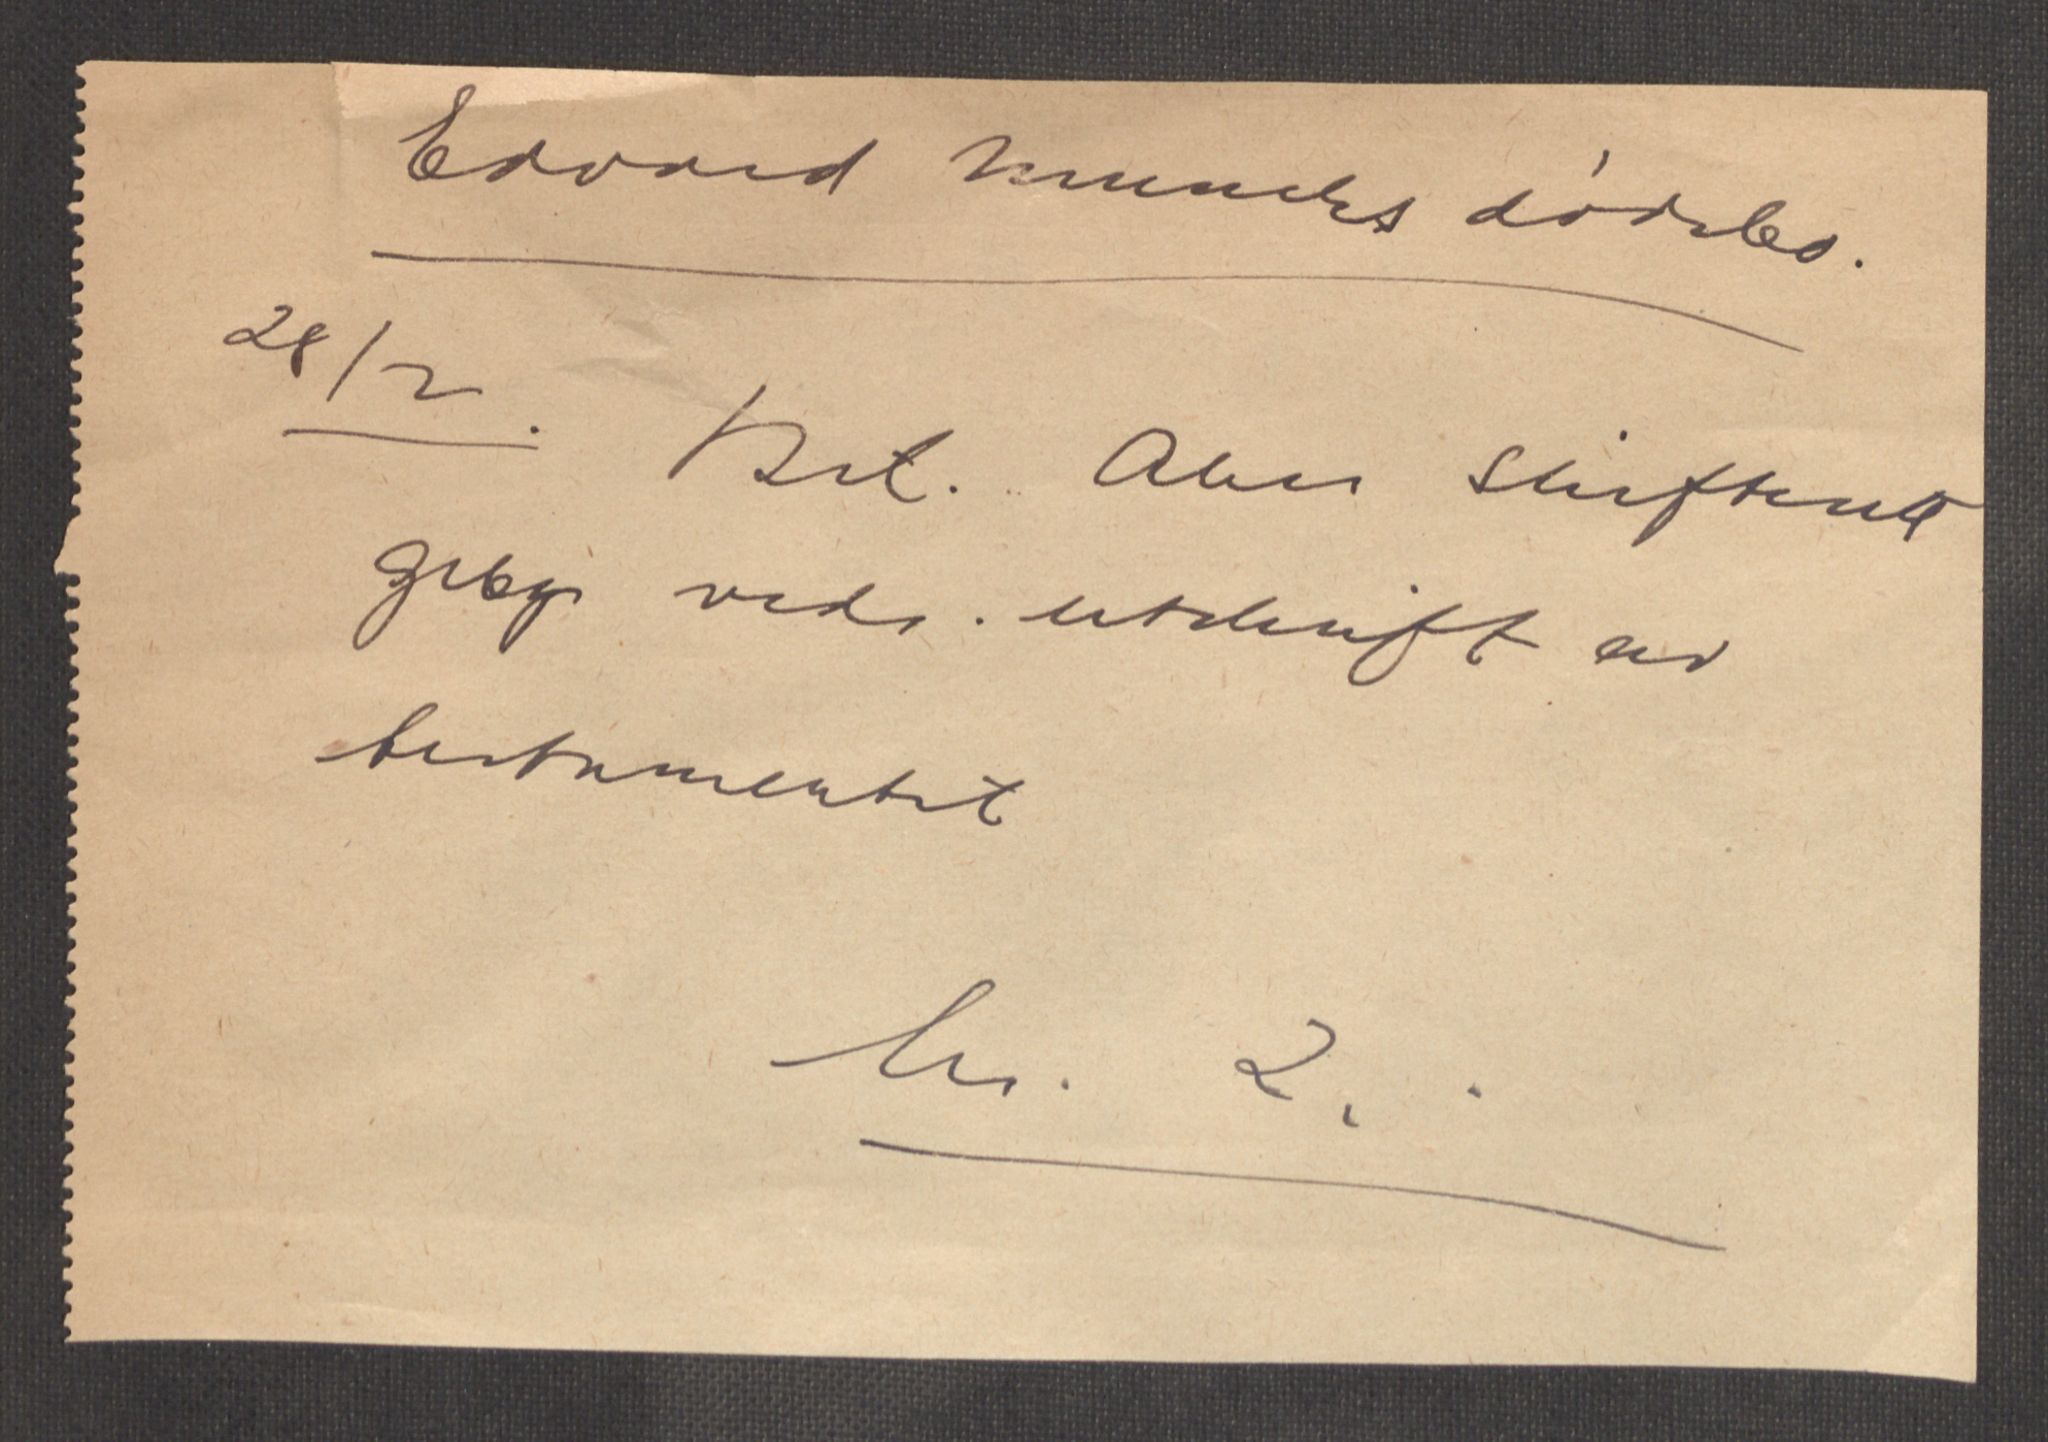 Edvard Munchs dødsbo.
28/2. Bet. Aker Skifterett
gebyr vedr. utskrift av
testamentet
kr. 2.